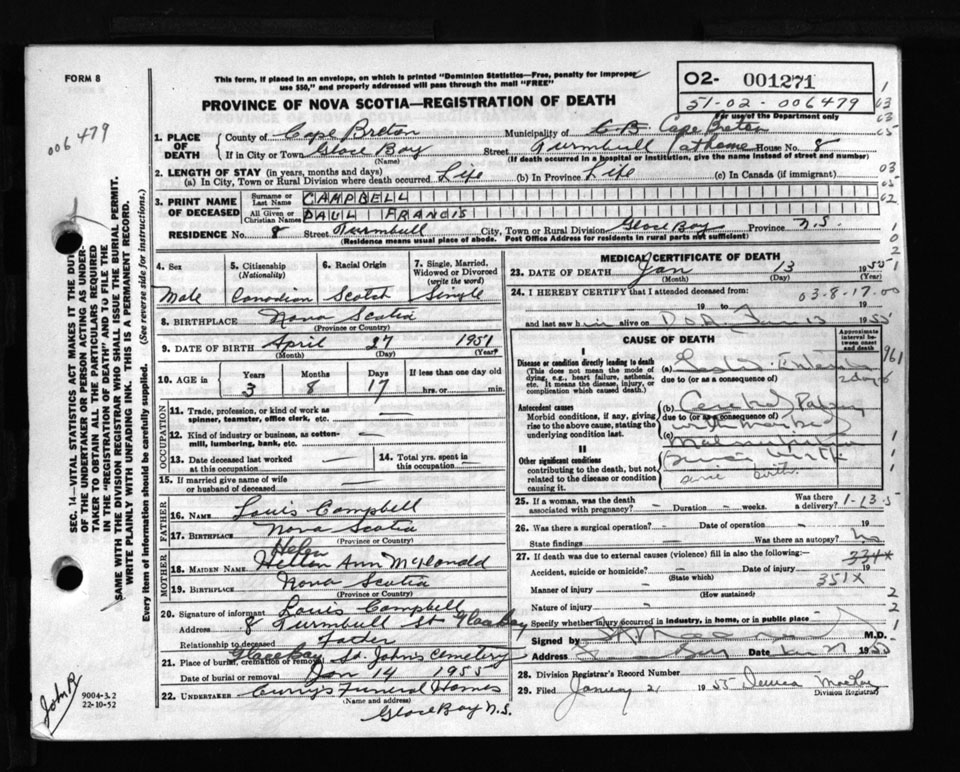 FORM 8
This form, if placed in an envelope, on which is printed "Dominion Statistics—Free, penalty for improper use $50," and properly addressed will pass through the mail "FREE"
O2- 001271
51-02-006479
For use of the Department only
006479
PROVINCE OF NOVA SCOTIA—REGISTRATION OF DEATH
1. PLACE OF DEATH
County of Cape Breton Municipality of C B Cape Breton
If in City or Town Glace Bay (Name) Street Turnbull at home House No. 8
(If death occurred in a hospital or institution, give the name instead of street and number)
2. LENGTH OF STAY (in years, months and days)
(a) In City, Town or Rural Division where death occurred Life (b) In Province Life (c) In Canada (if immigrant)
3. PRINT NAME OF DECEASED
Surname or Last Name CAMPBELL
All Given or Christian Names PAUL FRANCIS
RESIDENCE No. 8 Street Turnbull City, Town or Rural Division Glace Bay Province N.S.
(Residence means usual place of abode. Post Office Address for residents in rural parts not sufficient)
4. Sex Male
5. Citizenship (Nationality) Canadian
6. Racial Origin Scotch
7. Single, Married, Widowed or Divorced (write the word) Single
8. BIRTHPLACE Nova Scotia
(Province or Country)
9. DATE OF BIRTH April 27 1951
(Month) (Day) (Year)
10. AGE in Years Months Days If less than one day old
3 8 17 hrs. or min.
OCCUPATION
11. Trade, profession, or kind of work as spinner, teamster, office clerk, etc. —
12. Kind of industry or business, as cotton-mill, lumbering, bank, etc. —
13. Date deceased last worked at this occupation —
14. Total yrs. spent in this occupation —
15. If married give name of wife or husband of deceased —
FATHER
16. NAME Louis Campbell
17. BIRTHPLACE Nova Scotia
(Province or Country)
MOTHER
Helen
18. MAIDEN NAME Ann McDonald
19. BIRTHPLACE Nova Scotia
(Province or Country)
20. Signature of informant Louis Campbell
Address 8 Turnbull St Glace Bay
Relationship to deceased Father
21. Place of burial, cremation or removal Glace Bay St. John's Cemetery
Date of burial or removal Jan 14 1955
22. UNDERTAKER Curry's Funeral Homes
(Name and address)
Glace Bay N.S.
MEDICAL CERTIFICATE OF DEATH
23. DATE OF DEATH Jan 13 1955
(Month) (Day) (Year)
24. I HEREBY CERTIFY that I attended deceased from:
03-8-17-00
19 to 19
and last saw him alive on D.O.A. 13 1955
CAUSE OF DEATH
Approximate interval between onset and death
I
Disease or condition directly leading to death (This does not mean the mode of dying, e.g., heart failure, asthenia, etc. It means the disease, injury, or complication which caused death)
(a)
due to (or as a consequence of) 2 days
Antecedent causes
Morbid conditions, if any, giving rise to the above cause, stating the underlying condition last.
(b) Cerebral Palsy
due to (or as a consequence of)
(c) Malnutrition
since birth
II
Other significant conditions contributing to the death, but not related to the disease or condition causing it.
since birth
25. If a woman, was the death associated with pregnancy? - Duration - weeks. Was there a delivery?
1-13-5
26. Was there a surgical operation? - Date of operation - 19
State findings - Was there an autopsy? No
27. If death was due to external causes (violence) fill in also the following:-
334x
Accident, suicide or homicide? - (State which) Date of injury 19
351X
Manner of injury (How sustained)
Nature of injury -
Specify whether injury occurred in industry, in home, or in public place
Signed by M.D.
Address Date Jan 21 1955
28. Division Registrar's Record Number
29. Filed January 21 1955
Division Registrar
SEC. 14—VITAL STATISTICS ACT MAKES IT THE DUTY OF THE UNDERTAKER OR PERSON ACTING AS UNDERTAKER TO OBTAIN ALL THE PARTICULARS REQUIRED IN THE "REGISTRATION OF DEATH" AND TO FILE THE SAME WITH THE DIVISION REGISTRAR WHO SHALL ISSUE THE BURIAL PERMIT.
WRITE PLAINLY WITH UNFADING INK. THIS IS A PERMANENT RECORD.
Every item of Information should be carefully supplied. (See reverse side for instructions.)
9004-3.2
22-10-52
John B